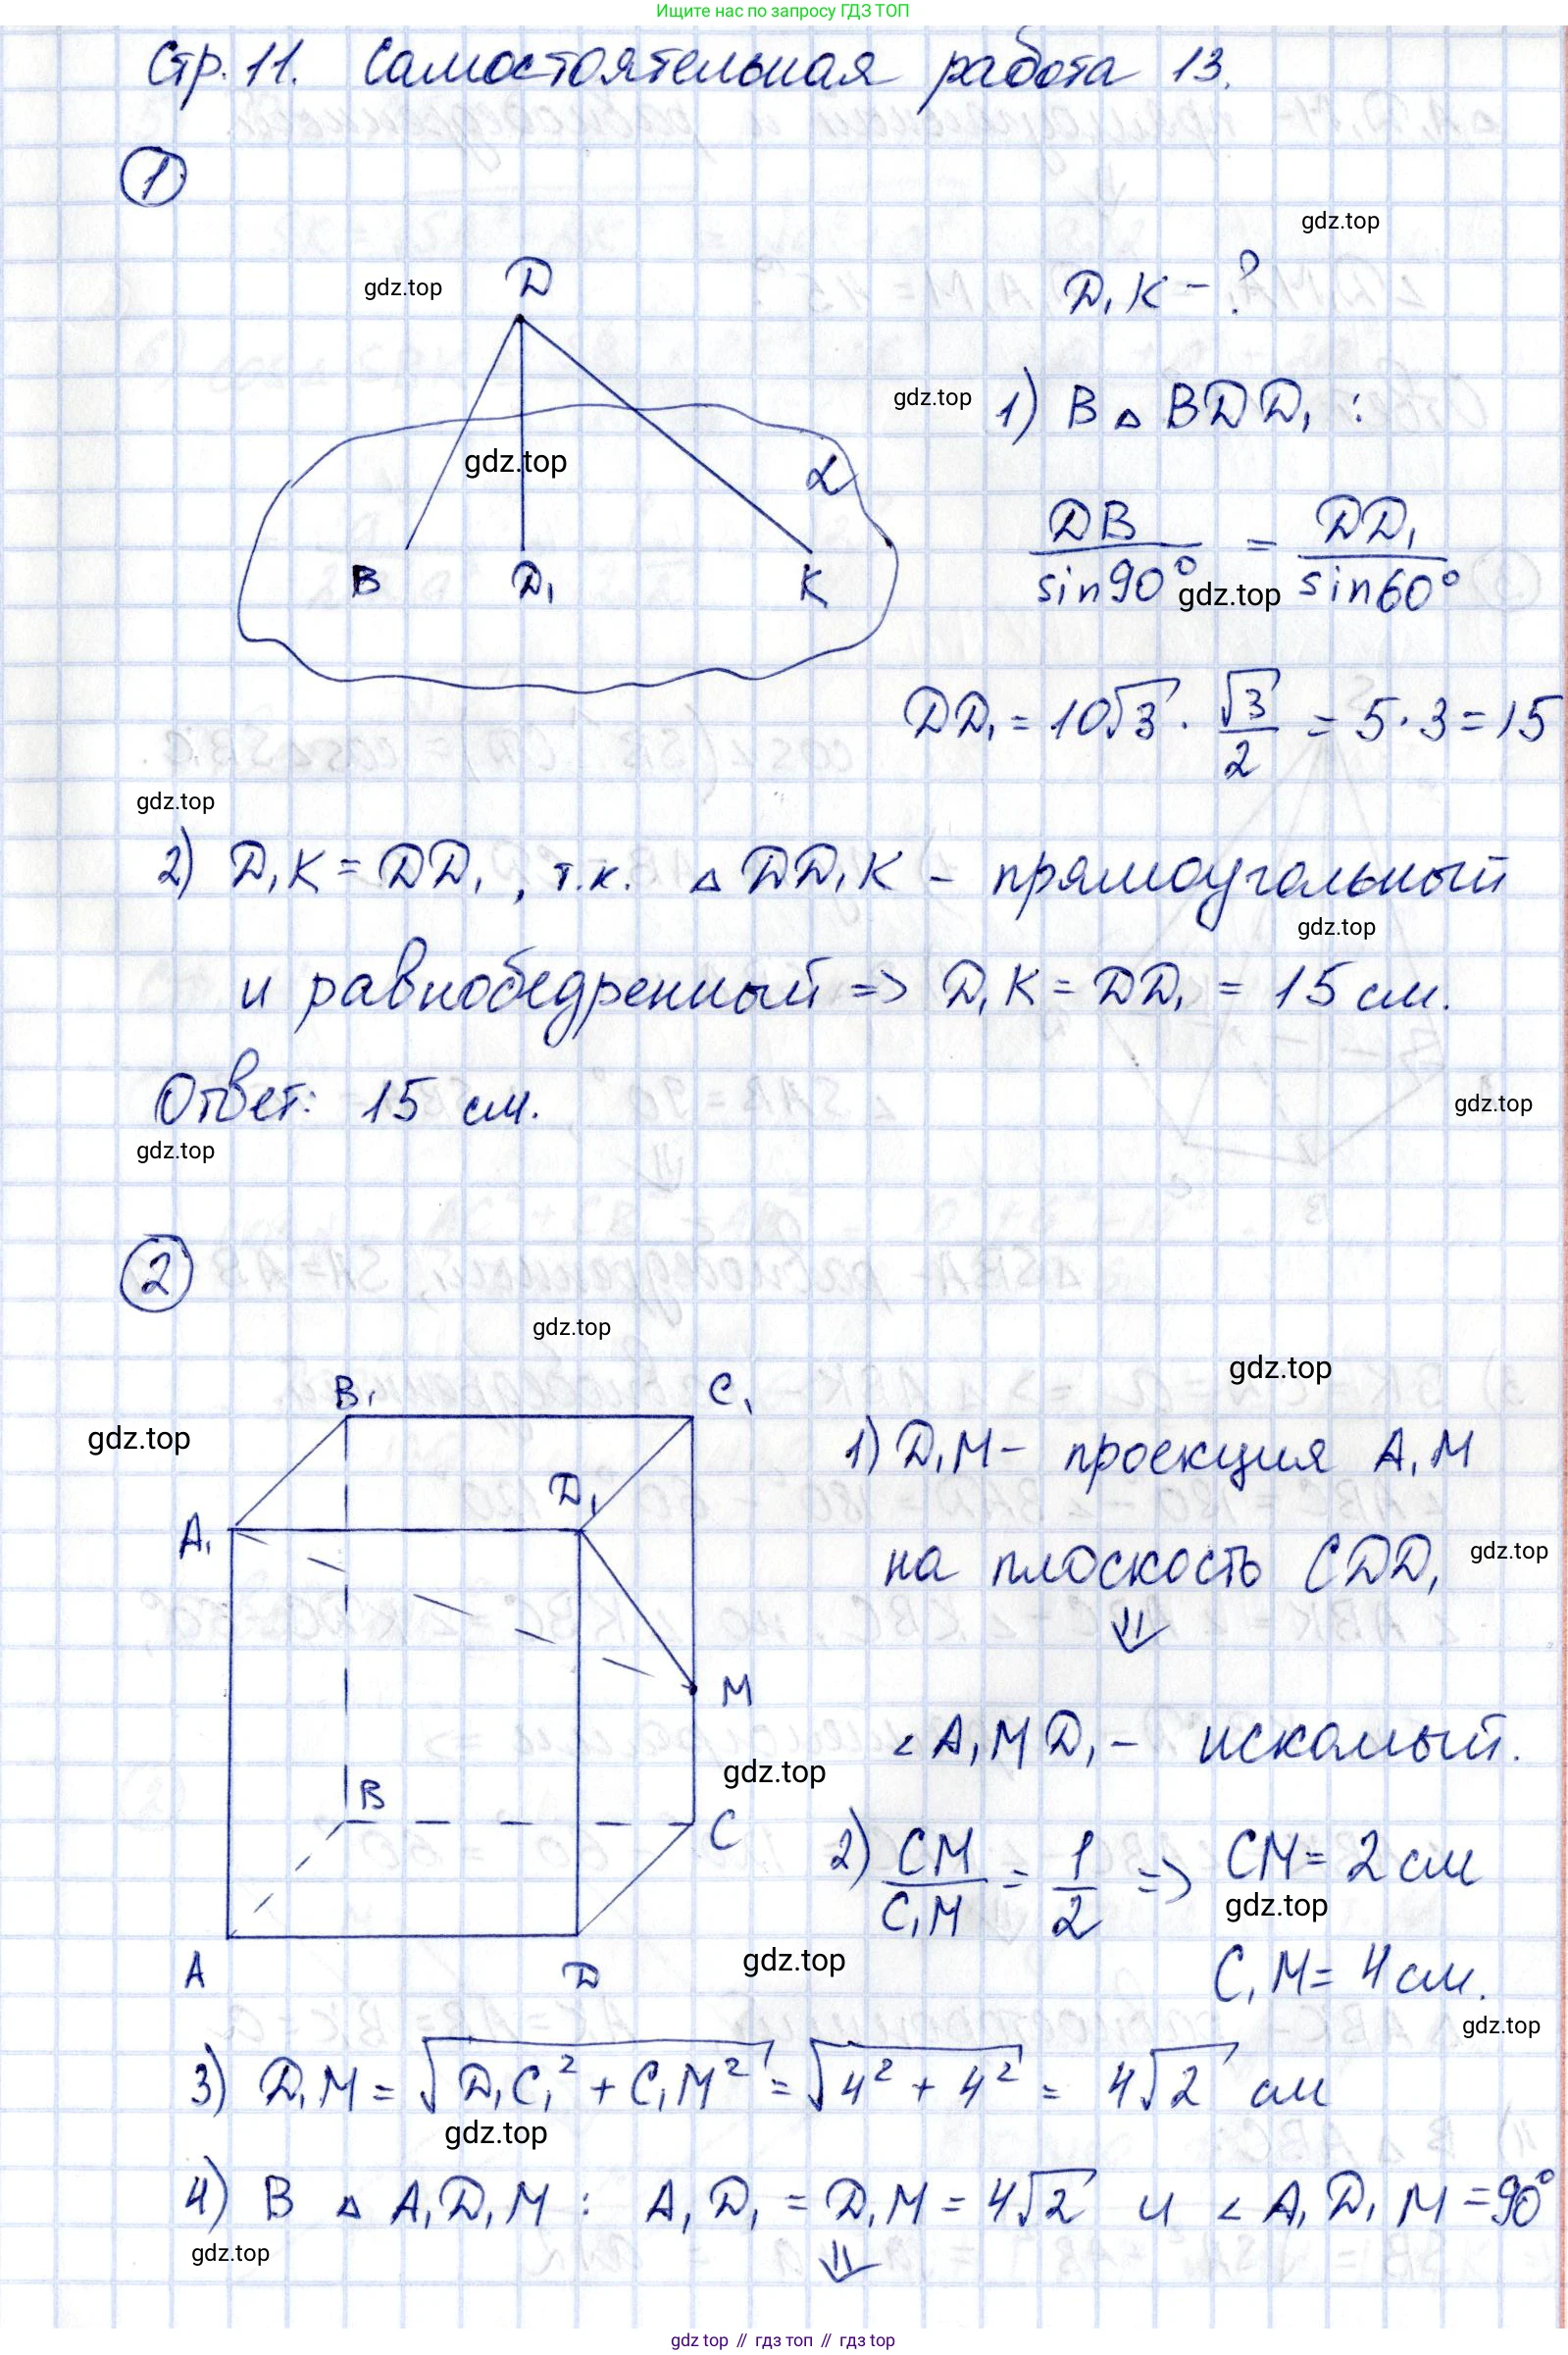 Ищите нас по запросу ГДЗ ТОП
Стр. 11. Самостоятельная работа 13.
1
gdz.top
gdz.top
D
D₁K - ?
gdz.top
1) В △ BDD₁ :
gdz.top
α
B
D₁
K
DB/sin90° = DD₁/sin60°
gdz.top
DD₁ = 10√3 · √3/2 = 5·3 = 15
gdz.top
2) D₁K = DD₁, т.к. △ DD₁K - прямоугольный
gdz.top
и равнобедренный => D₁K = DD₁ = 15 см.
Ответ: 15 см.
gdz.top
gdz.top
2
gdz.top
gdz.top
B₁
C₁
gdz.top
1) D₁M - проекция A₁M
D₁
A₁
на плоскость CDD₁
gdz.top
⇓
M
∠A₁MD₁ - искомый.
gdz.top
B
C
2) CM/C₁M = 1/2 => CM = 2 см
gdz.top
gdz.top
A
D
C₁M = 4 см.
gdz.top
3) D₁M = √(D₁C₁² + C₁M²) = √(4² + 4²) = 4√2 см
gdz.top
4) В △ A₁D₁M : A₁D₁ = D₁M = 4√2 и ∠A₁D₁M = 90°
gdz.top
⇓
gdz top // гдз топ // гдз top